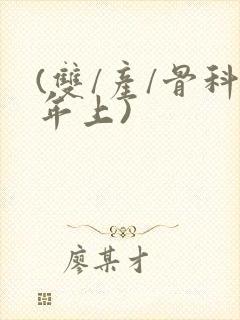 (雙/產/骨科
年上)
廖某才